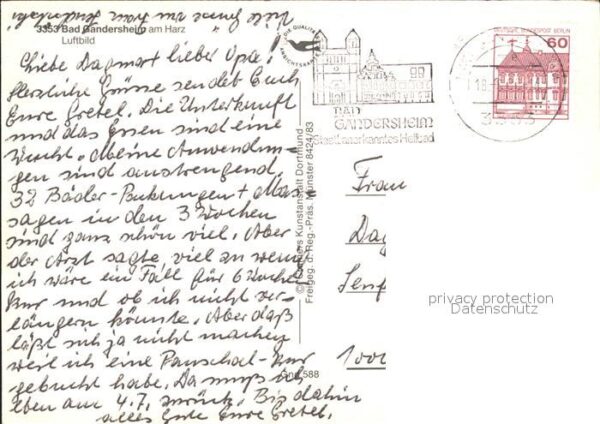 Viele Grüße von Frau
3353 Bad Gandersheim am Harz
Luftbild
Liebe Dagmar! lieber Opa!
Herzliche Grüsse sendet Euch
Eure Gretel. Die Unterkunft
und das Essen sind eine
Wucht. Meine Anwendun-
gen sind anstrengend,
32 Bäder-Buchungen + Mas-
sagen in den 3 Wochen
sind ganz schön viel. Aber
der Arzt sagte, viel zu wenig
ich wäre ein Fall für 6 Wochen
Kur und ob ich nicht ver-
längern könnte. Aber daß
läßt sich ja nicht machen
weil ich eine Pauschal-Kur
gebucht habe. Da muß ich
eben am 4.7. zurück. Bis dahin
alles Gute Eure Gretel.
DIE QUALITÄTS
ANSICHTSKARTE
© Cramers Kunstanstalt Dortmund
Freigeg. d. Reg.-Präs. Münster 8424/83
588
BAD
GANDERSHEIM
Staatl. anerkanntes Heilbad
DEUTSCHE BUNDESPOST BERLIN
60
Frau
Dag
Senf
1000
privacy protection
Datenschutz